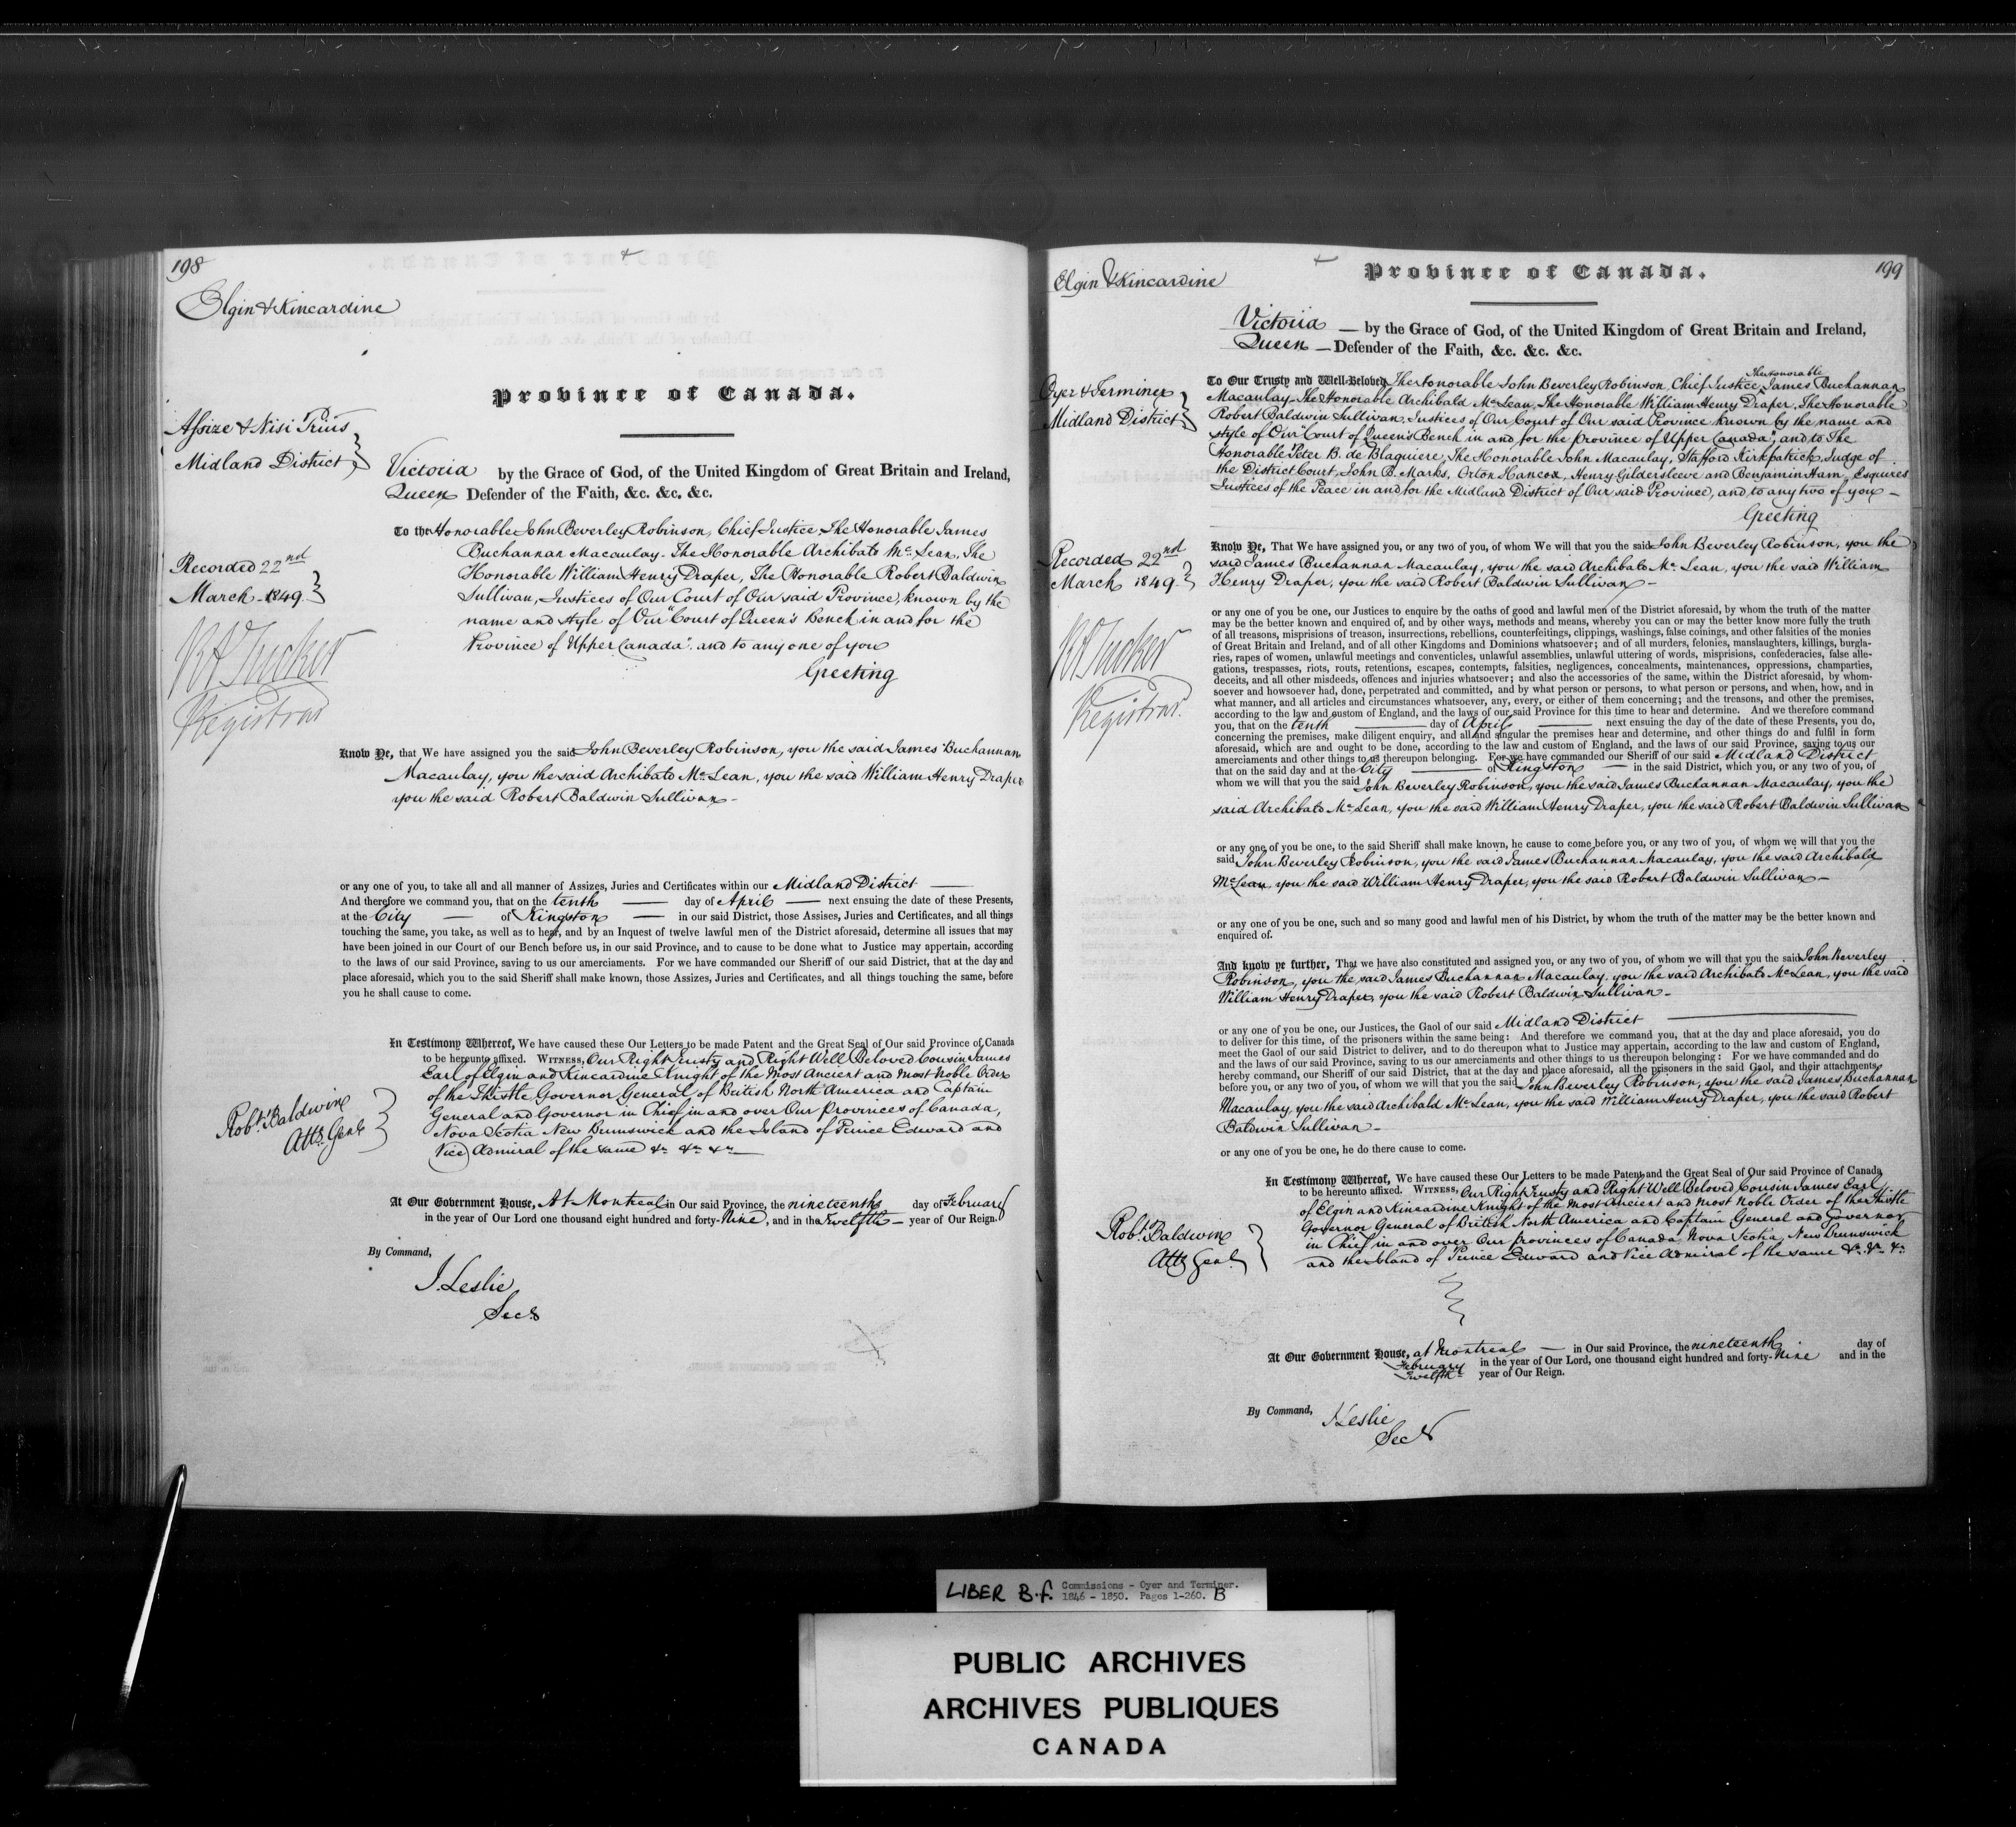 198
Elgin & Kincardine
Province of Canada.
Assize & Nisi Prius
Midland District
Victoria by the Grace of God, of the United Kingdom of Great Britain and Ireland,
Queen Defender of the Faith, &c. &c. &c.
To the Honorable John Beverley Robinson, Chief Justice, The Honorable James
Buchannan Macaulay. The Honorable Archibald Mc. Lean, The
Honorable William Henry Draper, The Honorable Robert Baldwin
Sullivan, Justices of Our Court of Our said Province, known by the
name and style of Our "Court of Queen's Bench in and for the
Province of Upper Canada", and to any one of you
Greeting
Recorded 22nd
March 1849.
RA Tucker
Registrar
Know Ye, that We have assigned you the said John Beverley Robinson, you the said James Buchannan
Macaulay, you the said Archibald Mc. Lean, you the said William Henry Draper
you the said Robert Baldwin Sullivan —
or any one of you, to take all and all manner of Assizes, Juries and Certificates within our Midland District —
And therefore we command you, that on the tenth — day of April — next ensuing the date of these Presents,
at the City — of Kingston — in our said District, those Assises, Juries and Certificates, and all things
touching the same, you take, as well as to hear, and by an Inquest of twelve lawful men of the District aforesaid, determine all issues that may
have been joined in our Court of our Bench before us, in our said Province, and to cause to be done what to Justice may appertain, according
to the laws of our said Province, saving to us our amerciaments. For we have commanded our Sheriff of our said District, that at the day and
place aforesaid, which you to the said Sheriff shall make known, those Assizes, Juries and Certificates, and all things touching the same, before
you he shall cause to come.
In Testimony Whereof, We have caused these Our Letters to be made Patent and the Great Seal of Our said Province of Canada
to be hereunto affixed. WITNESS, Our Right Trusty and Right Well Beloved Cousin James
Earl of Elgin and Kincardine Knight of the Most Ancient and Most Noble Order
of the Thistle Governor General of British North America and Captain
General and Governor in Chief in and over Our Provinces of Canada,
Nova Scotia New Brunswick and the Island of Prince Edward and
Vice Admiral of the same &c &c &c —
Robt. Baldwin
Atty. Genl.
At Our Government House, At Montreal in Our said Province, the nineteenth day of February
in the year of Our Lord one thousand eight hundred and forty-Nine, and in the Twelfth — year of Our Reign.
By Command,
J. Leslie
Secy
199
Elgin & Kincardine
Province of Canada.
Victoria — by the Grace of God, of the United Kingdom of Great Britain and Ireland,
Queen — Defender of the Faith, &c. &c. &c.
Oyer & Terminer
Midland District
To Our Trusty and Well-Beloved The Honorable John Beverley Robinson, Chief Justice, The Honorable James Buchannan
Macaulay, The Honorable Archibald Mc. Lean, The Honorable William Henry Draper, The Honorable
Robert Baldwin Sullivan, Justices of Our Court of Our said Province known by the name and
style of Our "Court of Queen's Bench in and for the Province of Upper Canada", and to The
Honorable Peter B. de Blaquiere, The Honorable John Macaulay, Stafford Kirkpatrick, Judge of
the District Court, John B. Marks, Orton Hancox, Henry Gildersleeve and Benjamin Ham, Esquires
Justices of the Peace in and for the Midland District of Our said Province, and to any two of you —
Greeting
Recorded 22nd
March 1849.
RA Tucker
Registrar.
Know Ye, That We have assigned you, or any two of you, of whom We will that you the said John Beverley Robinson, you the
said James Buchannan Macaulay, you the said Archibald Mc. Lean, you the said William
Henry Draper, you the said Robert Baldwin Sullivan —
or any one of you be one, our Justices to enquire by the oaths of good and lawful men of the District aforesaid, by whom the truth of the matter
may be the better known and enquired of, and by other ways, methods and means, whereby you can or may the better know more fully the truth
of all treasons, misprisions of treason, insurrections, rebellions, counterfeitings, clippings, washings, false coinings, and other falsities of the monies
of Great Britain and Ireland, and of all other Kingdoms and Dominions whatsoever; and of all murders, felonies, manslaughters, killings, burgla-
ries, rapes of women, unlawful meetings and conventicles, unlawful assemblies, unlawful uttering of words, misprisions, confederacies, false alle-
gations, trespasses, riots, routs, retentions, escapes, contempts, falsities, negligences, concealments, maintenances, oppressions, champarties,
deceits, and all other misdeeds, offences and injuries whatsoever; and also the accessories of the same, within the District aforesaid, by whom-
soever and howsoever had, done, perpetrated and committed, and by what person or persons, to what person or persons, and when, how, and in
what manner, and all articles and circumstances whatsoever, any, every, or either of them concerning; and the treasons, and other the premises,
according to the law and custom of England, and the laws of our said Province for this time to hear and determine. And we therefore command
you, that on the tenth — day of April — next ensuing the day of the date of these Presents, you do,
concerning the premises, make diligent enquiry, and all and singular the premises hear and determine, and other things do and fulfil in form
aforesaid, which are and ought to be done, according to the law and custom of England, and the laws of our said Province, saving to us our
amerciaments and other things to us thereupon belonging. For we have commanded our Sheriff of our said Midland District
that on the said day and at the City — of Kingston — in the said District, which you, or any two of you, of
whom we will that you the said John Beverley Robinson, you the said James Buchannan Macaulay, you the
said Archibald Mc. Lean, you the said William Henry Draper, you the said Robert Baldwin Sullivan
or any one of you be one, to the said Sheriff shall make known, he cause to come before you, or any two of you, of whom we will that you the
said John Beverley Robinson, you the said James Buchannan Macaulay, you the said Archibald
Mc. Lean, you the said William Henry Draper, you the said Robert Baldwin Sullivan —
or any one of you be one, such and so many good and lawful men of his District, by whom the truth of the matter may be the better known and
enquired of.
And know ye further, That we have also constituted and assigned you, or any two of you, of whom we will that you the said John Beverley
Robinson, you the said James Buchannan Macaulay, you the said Archibald Mc Lean, you the said
William Henry Draper, you the said Robert Baldwin Sullivan —
or any one of you be one, our Justices, the Gaol of our said Midland District —
to deliver for this time, of the prisoners within the same being: And therefore we command you, that at the day and place aforesaid, you do
meet the Gaol of our said District to deliver, and to do thereupon what to Justice may appertain, according to the law and custom of England,
and the laws of our said Province, saving to us our amerciaments and other things to us thereupon belonging: For we have commanded and do
hereby command, our Sheriff of our said District, that at the day and place aforesaid, all the prisoners in the said Gaol, and their attachments,
before you, or any two of you, of whom we will that you the said John Beverley Robinson, you the said James Buchannan
Macaulay, you the said Archibald Mc. Lean, you the said William Henry Draper, you the said Robert
Baldwin Sullivan —
or any one of you be one, he do there cause to come.
In Testimony Whereof, We have caused these Our Letters to be made Patent and the Great Seal of Our said Province of Canada
to be hereunto affixed. WITNESS, Our Right Trusty and Right Well Beloved Cousin James Earl
of Elgin and Kincardine Knight of the Most Ancient and Most Noble Order of the Thistle
Governor General of British North America and Captain General and Governor
in Chief in and over Our provinces of Canada Nova Scotia, New Brunswick
and the Island of Prince Edward and Vice Admiral of the same &c. &c. &c.
Robt. Baldwin
Atty Genl.
At Our Government House, at Montreal — in Our said Province, the nineteenth day of
February in the year of Our Lord, one thousand eight hundred and forty-Nine and in the
Twelfth year of Our Reign.
By Command,
J. Leslie
Secy
LIBER B.f. Commissions - Oyer and Terminer.
1846 - 1850. Pages 1-260. B
PUBLIC ARCHIVES
ARCHIVES PUBLIQUES
CANADA